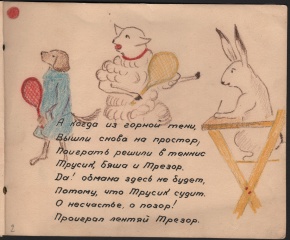 А когда из горной тени,
Вышли снова на простор,
Поиграть решили в теннис
Трусик, Бяша и Трезор.
Да! обмана здесь не будет,
Потому, что Трусик судит.
О несчастье, о позор!
Проиграл лентяй Трезор.